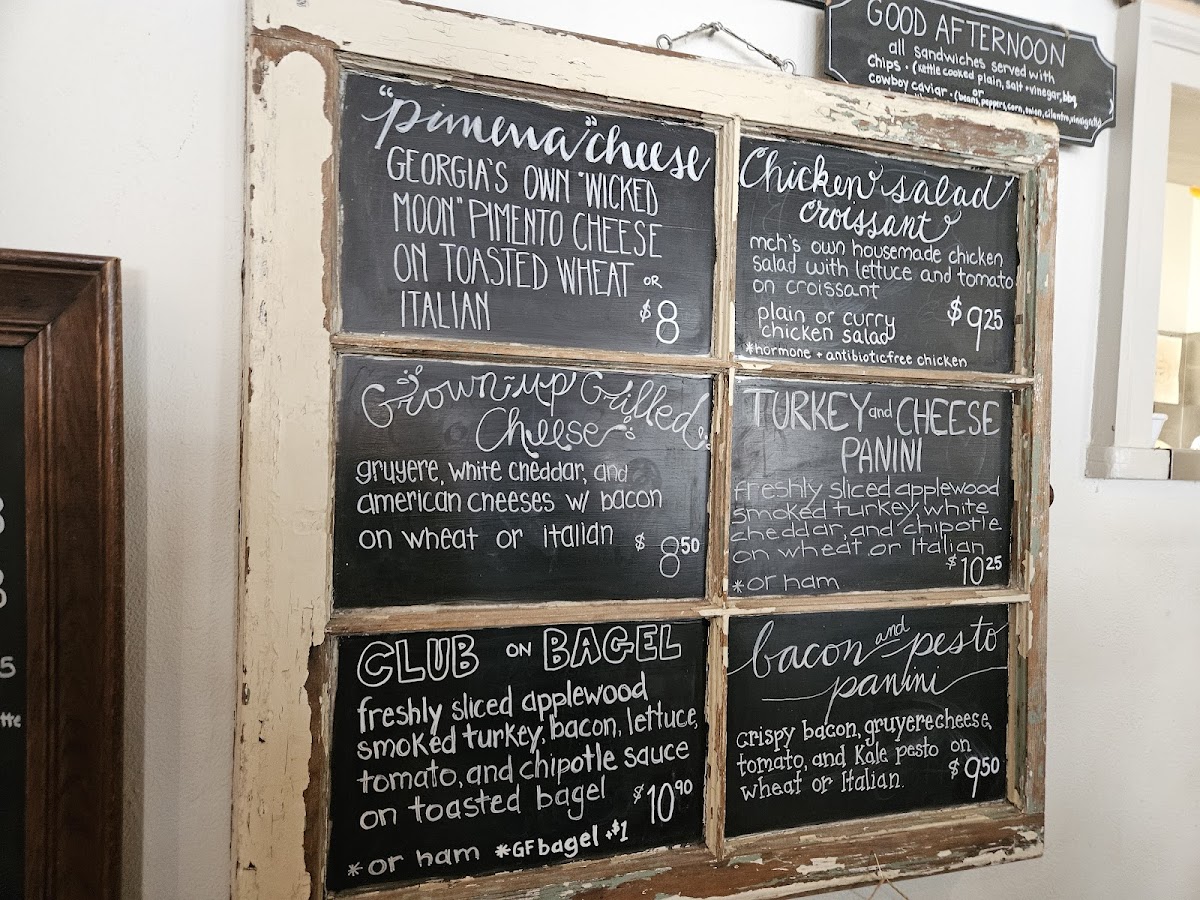 GOOD AFTERNOON
all sandwiches served with
chips · (kettle cooked plain, salt + vinegar, bbq
or
cowboy caviar · (beans, peppers, corn, onion, cilantro, vinaigrette)
"pimena" cheese
GEORGIA'S OWN "WICKED
MOON" PIMENTO CHEESE
ON TOASTED WHEAT OR
ITALIAN $8
Chicken salad
croissant
mch's own housemade chicken
salad with lettuce and tomato
on croissant
plain or curry
chicken salad $9.25
*hormone + antibiotic free chicken
Grown-up Grilled
Cheese
gruyere, white cheddar, and
american cheeses w/ bacon
on wheat or italian $8.50
TURKEY and CHEESE
PANINI
freshly sliced applewood
smoked turkey, white
cheddar, and chipotle
on wheat or Italian
$10.25
*or ham
CLUB ON BAGEL
freshly sliced applewood
smoked turkey, bacon, lettuce,
tomato, and chipotle sauce
on toasted bagel $10.90
*or ham *GF bagel +$1
bacon and pesto
panini
crispy bacon, gruyere cheese,
tomato, and Kale pesto on
wheat or Italian. $9.50